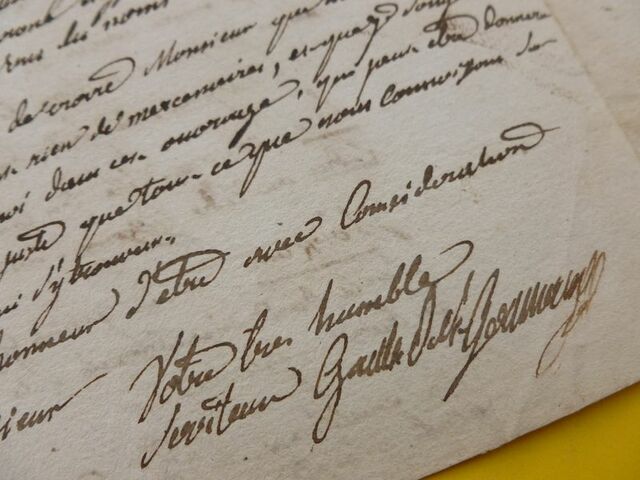 sous les noms
de croire Monsieur que
rien de mercenaires, et que
dans cet ouvrage, qui peut etre donnera
juste que tout ce que nous connaissons
s'y trouver.
honneur d'etre avec Consideration
Votre tres humble
serviteur Gault de St Germain